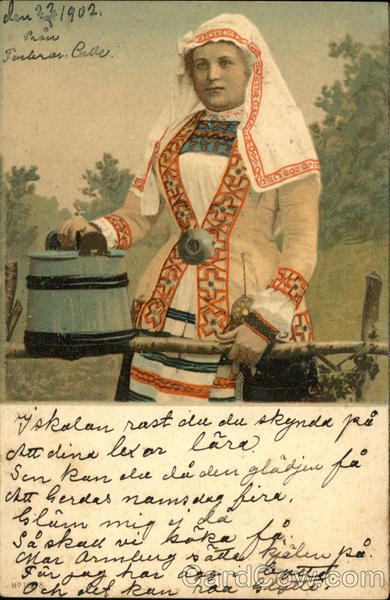 den 22/8 1902.
Från
Farbror Calle
I skolan rast du du skynda på
Att dina lexor lära
Sen kan du då den glädjen få
Att Gerdas namsdag fira.
Gläm mig ej då
Så skall vi söka få
Mar Armberg sätta kjolen på.
För jag har
Och det kan
No
CardCow.com